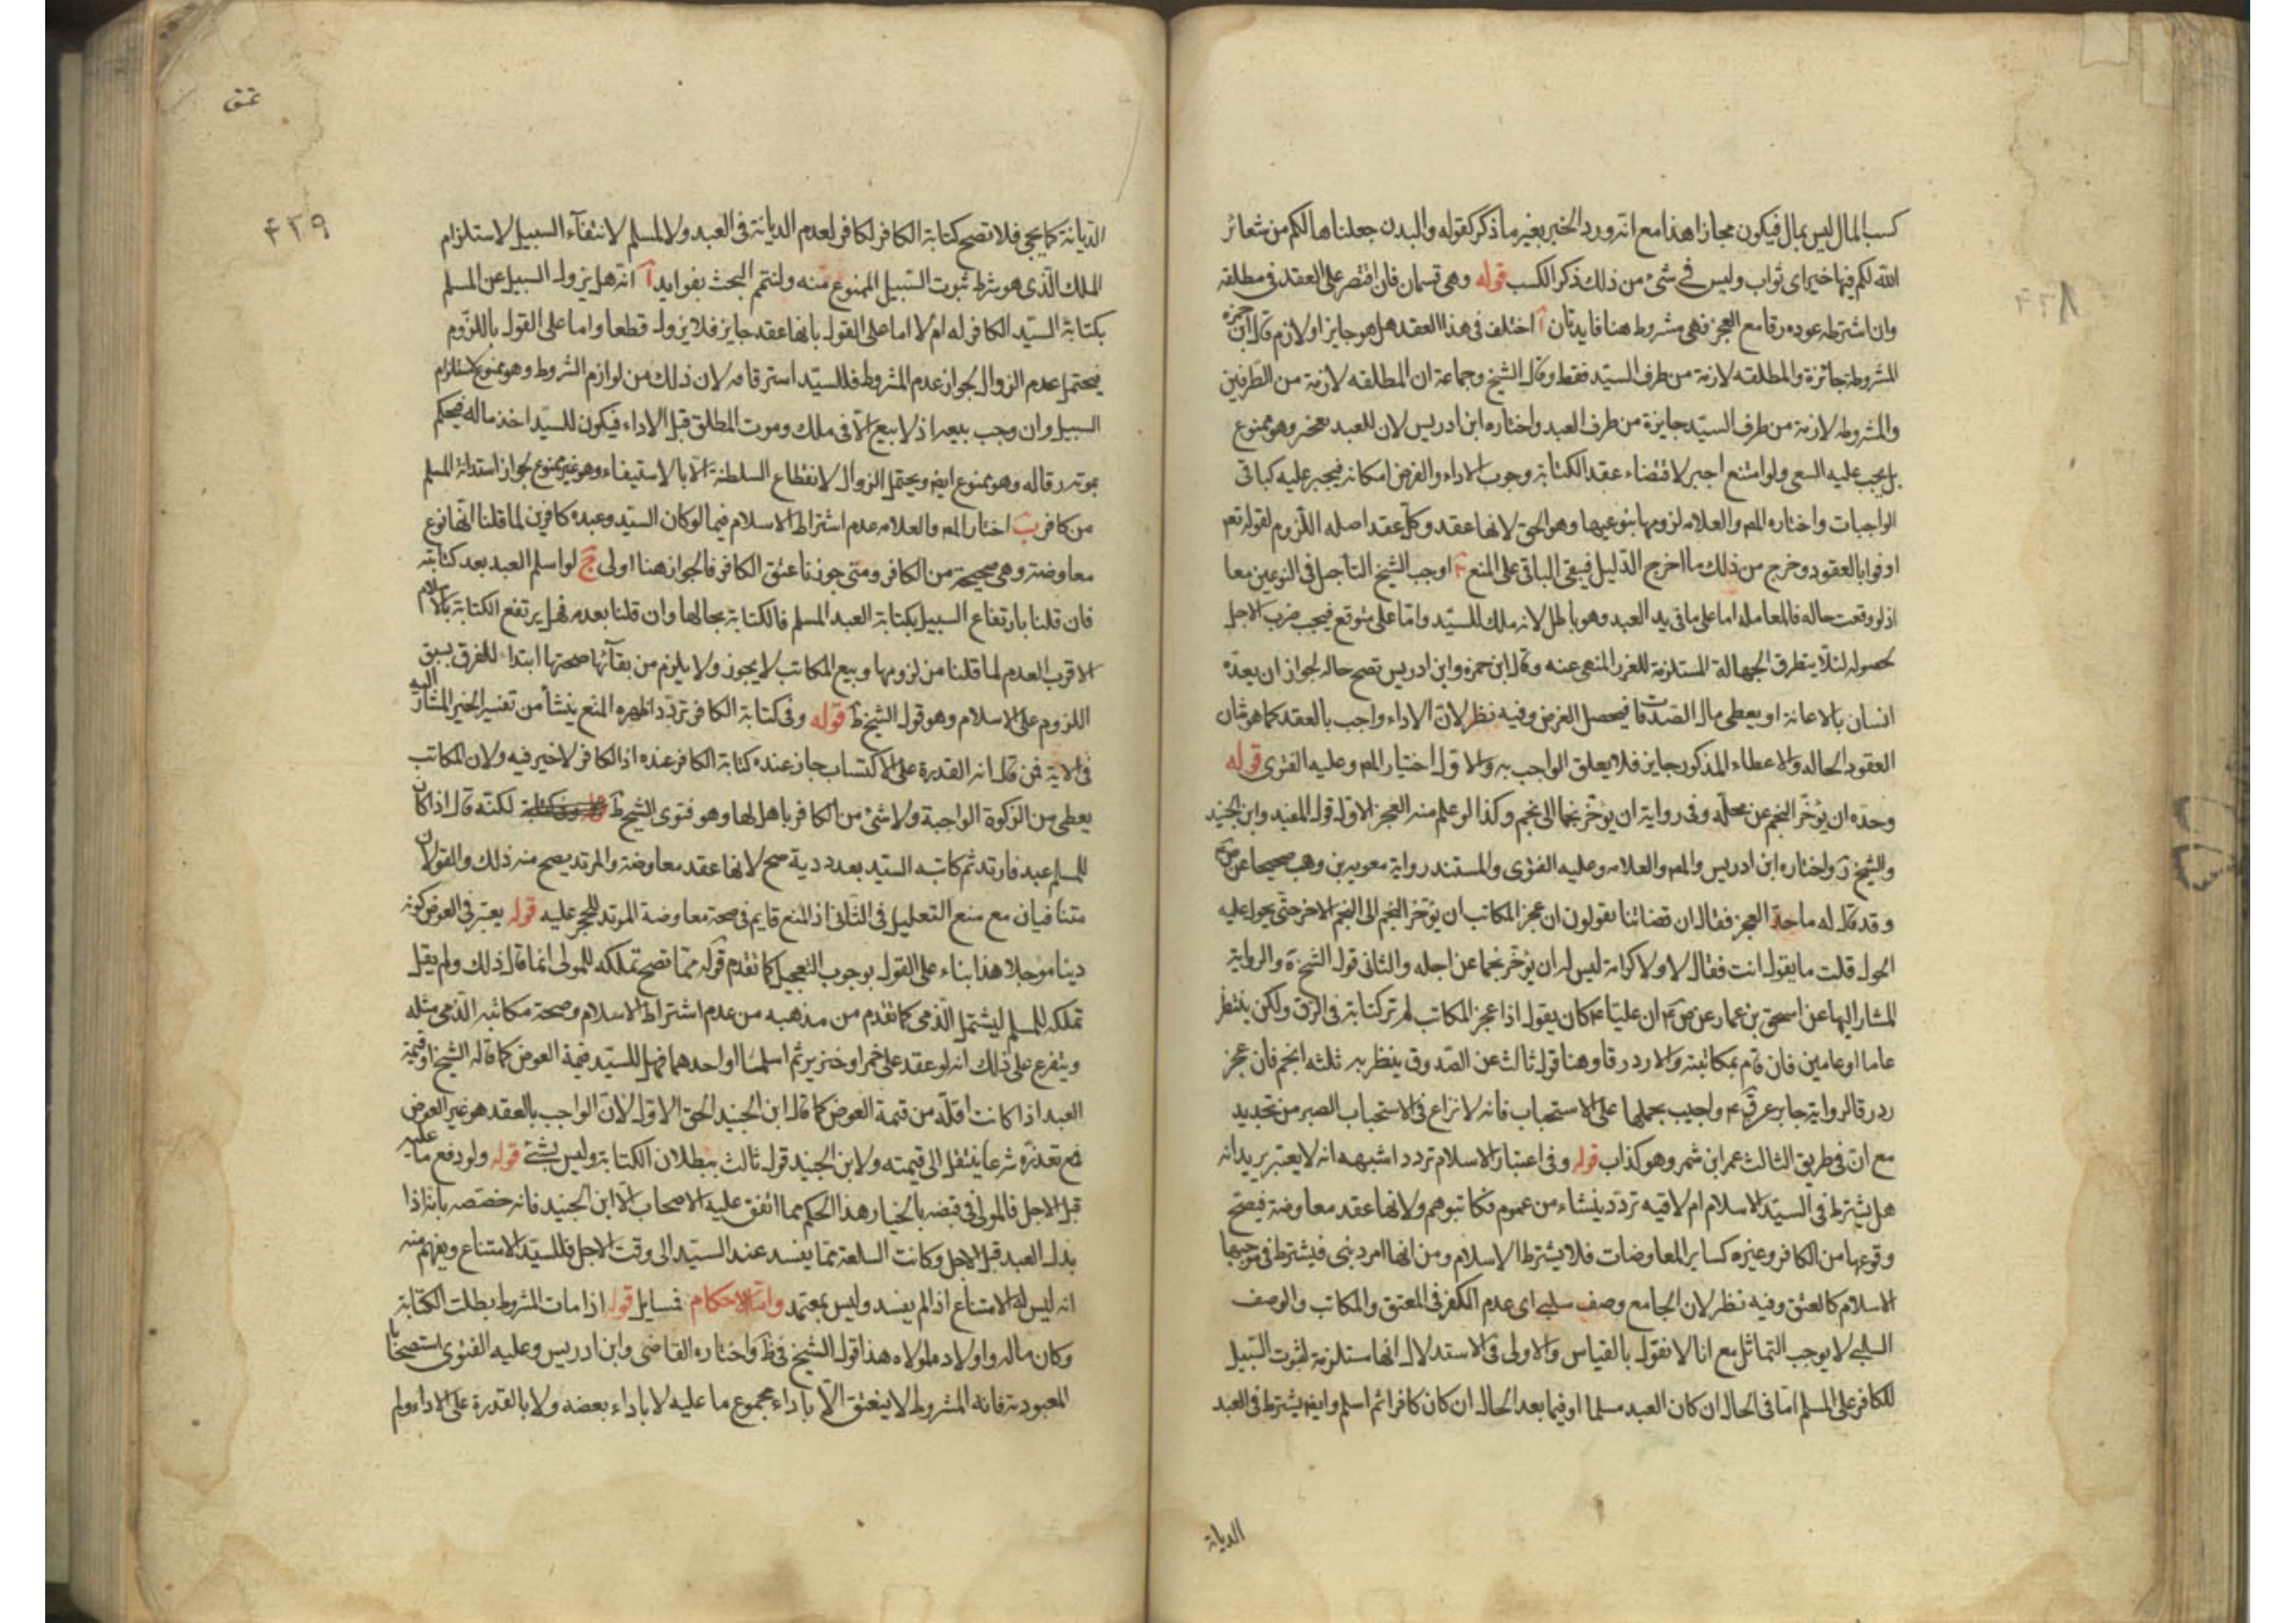 كسب المال ليس بمال فيكون مجازا هذا مع انه ورد الخير بغير ما ذكر كقوله والبدن جعلناها لكم من شعائر
الله لكم فيها خير اى ثواب وليس فى شئ من ذلك ذكر الكسب قوله وهى قسمان فان اقتصر على العقد فى مطلقه
وان اشترط عوده رقا مع العجز فهى مشروط هنا فايدتان آ اختلف فى هذا العقد هل هو جايز او لازم قال ابن حمزه
المشروطة جائزة والمطلقه لازمة من طرف السيد فقط وقال الشيخ وجماعة ان المطلقه لازمة من الطرفين
والمشروطه لازمة من طرف السيد جايزة من طرف العبد واختاره ابن ادريس لان للعبد تعجيز وهو ممنوع
بل يجب عليه السعى ولو امتنع اجبر لاقتضاء عقد الكتابة وجوب الاداء والفرض امكانه فيجبر عليه كباقى
الواجبات واختاره المص والعلامه لزومها بنوعيها وهو الحق لانها عقد وكل عقد اصله اللزوم لقوله تعم
اوفوا بالعقود وخرج من ذلك ما اخرج الدليل فيبقى الباقى على المنع ب اوجب الشيخ التأجيل فى النوعين معا
اذ لو وقعت حاله فالمعامله اما على ما فى يد العبد وهو باطل لانه ملك للسيد واما على متوقع فيجب ضرب الاجل
لحصوله لئلا يتطرق الجهالة المستلزمة للغرر المنهى عنه وقال ابن حمزه وابن ادريس تصح حاله لجواز ان يعده
انسان بالاعانة او يعطى مال الصدقات فيحصل الغرض وفيه نظر لان الاداء واجب بالعقد كما هو شان
العقود الحاله والاعطاء المذكور جايز فلا يعلق الواجب به والاول اختيار المص وعليه الفتوى قوله
وحده ان يؤخر النجم عن محله وفى رواية ان يؤخر نجما الى نجم وكذا لو علم منه العجز الاول قول المفيد وابن الجنيد
والشيخ واختاره ابن ادريس والمص والعلامه وعليه الفتوى والمستند رواية معويه بن وهب صحيحا عن ص ع
وقد قال له ما حد العجز فقال ان قضاتنا يقولون ان عجز المكاتب ان يؤخر النجم الى النجم الاخر حتى يحول عليه
الحول قلت ما يقول انت فقال لا ولا كرامة ليس له ان يؤخر نجما عن اجله والثانى قول الشيخ ة والرواية
المشار اليها عن اسحق بن عمار عن ص ع ان عليا ع كان يقول اذا عجز المكاتب لم ترد كتابته فى الرق ولكن ينتظر
عاما او عامين فان قام بمكاتبته والا رد رقا وهنا قول ثالث عن الصدوق ينظر به ثلثه انجم فان عجز
رد رقا لرواية جابر عن ق ع واجيب بحملها على الاستحباب فانه لا نزاع فى الاستحباب الصبر من تحديد
مع ان فى طريق الثالث عمر ابن شمر وهو كذاب قوله وفى اعتبار الاسلام تردد اشبهه انه لا يعتبر يريد انه
هل يشترط فى السيد الاسلام ام لا فيه تردد ينشاء من عموم فكاتبوهم ولانها عقد معاوضة فيصح
وقوعها من الكافر وغيره كساير المعاوضات فلا يشترط الاسلام ومن انها امر دينى فيشترط فى موجبها
الاسلام كالعتق وفيه نظر لان الجامع وصف سلبى اى عدم الكفر فى المعتق والمكاتب والوصف
السلبى لا يوجب التماثل مع انا لا نقول بالقياس والاولى فى الاستدلال انها مستلزمة لثبوت السبيل
للكافر على المسلم اما فى الحال ان كان العبد مسلما او فيما بعد الحال ان كان كافرا ثم اسلم وايض يشترط فى العبد
الديانة
عتق
۴۳۹
الديانة كما يجى فلا تصح كتابة الكافر لكافر لعدم الديانة فى العبد ولا لمسلم لانتفآء السبيل لاستلزام
الملك الذى هو شرط ثبوت السبيل الممنوع منه ولنتمم البحث بفوايد آ انه هل يزول السبيل عن المسلم
بكتابة السيد الكافر له ام لا اما على القول بانها عقد جايز فلا يزول قطعا واما على القول باللزوم
فيحتمل عدم الزوال لجواز عدم المشروط فللسيد استرقاقه لان ذلك من لوازم الشروط وهو ممنوع لاستلزام
السبيل وان وجب بيعه اذ لا بيع الا فى ملك وموت المطلق قبل الاداء فيكون للسيد اخذ ماله فيحكم
بموته رقاله وهو ممنوع ايض ويحتمل الزوال لانقطاع السلطنة الا بالاستيفاء وهو غير ممنوع لجواز استدانة المسلم
من كافر ب اختار المص والعلامه عدم اشتراط الاسلام فيما لو كان السيد وعبده كافرين لما قلنا انها نوع
معاوضة وهى صحيحة من الكافر ومتى جوزنا عتق الكافر فالجواز هنا اولى ج لو اسلم العبد بعد كتابته
فان قلنا بارتفاع السبيل بكتابة العبد المسلم فالكتابة بحالها وان قلنا بعدمه فهل يرتفع الكتابة بالاسلام
الاقرب العدم لما قلنا من لزومها وبيع المكاتب لا يجوز ولا يلزم من بقآئها صحتها ابتداء للفرق بسبق
اللزوم على الاسلام وهو قول الشيخ ط قوله وفى كتابة الكافر تردد اظهره المنع ينشأ من تفسير الخير المشار اليه
فى الاية فمن قال انه القدرة على الاكتساب جاز عنده كتابة الكافر عنده اذ الكافر لا خير فيه ولان المكاتب
يعطى من الزكوة الواجبة ولا شئ من الكافر باهل لها وهو فتوى الشيخ ط لكنه قال اذا كان
للمسلم عبد فارتد ثم كاتبه السيد بعد ردته صح لانها عقد معاوضة والمرتد يصح منه ذلك والقولان
متنافيان مع منع التعليل فى الثانى اذ المنع قايم فى صحة معاوضة المرتد للحجر عليه قوله يعتبر فى العوض كونه
دينا مؤجلا هذا بناء على القول بوجوب التعجيل كما تقدم قوله مما تصح تملكه للمولى انما قال ذلك ولم يقل
تملكه للمسلم ليشتمل الذمى كما تقدم من مذهبه من عدم اشتراط الاسلام وصحة مكاتبة الذمى مثله
ويتفرع على ذلك انه لو عقد على خمر او خنزير ثم اسلما او احدهما فهل للسيد قيمة العوض كما قاله الشيخ او قيمة
العبد اذا كانت اقل من قيمة العوض كما قال ابن الجنيد الحق الاول لان الواجب بالعقد هو غير العوض
مع تعذره شرعا ينتقل الى قيمته ولابن الجنيد قول ثالث ببطلان الكتابة وليس بشئ قوله ولو دفع ما عليه
قبل الاجل فالمولى فى قبضه بالخيار هذا الحكم مما اتفق عليه الاصحاب الا ابن الجنيد فانه خصصه بانه اذا
بذل العبد قبل الاجل وكانت السلعة مما يفسد عند السيد الى وقت الاجل فللسيد الامتناع ويفهم منه
انه ليس له الامتناع اذا لم يفسد وليس بمعتمد واما الاحكام فمسايل قوله اذا مات المشروط بطلت الكتابة
وكان ماله واولاده لمولاه هذا قول الشيخ فى ظ واختاره القاضى وابن ادريس وعليه الفتوى استصحابا
المعبودية فانه المشروط لا ينعتق الا باداء مجموع ما عليه لا باداء بعضه ولا بالقدرة على الاداء ولم